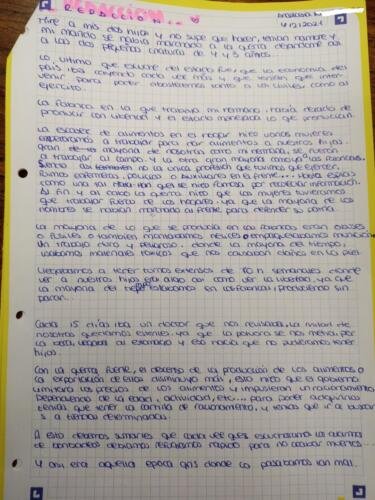 REDACCION...
4/2/2021
Miré a mis dos hijos y no supe que hacer, tenían hambre y
mi marido se había marchado a la guerra dejandome así
a los dos pequeños criaturas de 4 y 3 años.
Lo último que escuche del estado fue, que la economía del
país iba cayendo cada vez más y que tenían que inter-
venir para poder abastecernos tanto a los civiles, como al
ejercito.
La fabrica en la que trabajó mi hermano, había dejado de
producir con libertad y el estado manejaba lo que producían.
La escasez de alimentos en el hogar hizo varias mujeres
empezaramos a trabajar para dar alimentos a nuestros hijos.
gran mayoría de nosotras como mi hermana, se fueron
a trabajar al campo y la otra gran mayoría como yo a las
Siendo así la única profesión que tuvimos que ejercer,
Fuimos enfermeras, policias o auxiliares en el frente... hasta espías
como una tal que se hizo famosa por recopilar información.
Al fin y al cabo la guerra hizo que las mujeres tuvieramos
que trabajar fuera de los hogares ya que la mayoría de los
hombres se habían marchado al frente para defender su patria.
La mayoría de lo que se producia en las fabricas eran obuses
o fusiles o también empaquetabamos munición
Un trabajo duro y peligroso. donde la mayoría del tiempo,
usabamos materiales toxicos que nos causaban daños en la piel.
Llegabamos a tener turnos extensos de 80 h semanales donde
ver a nuestros hijos era algo así como ver la libertad, ya que
la mayoría del tiempo estabamos en las fabricas produciendo sin
parar.
Cada 15 días iba un doctor que nos revisaba, la mitad de
nosotras quedabamos esteriles ya que la polvora se nos metía por
la boca, llegaba al estomago y eso hacía que no pudieramos tener
hijos.
Con la guerra fuerte, el descenso de la producción de los alimentos o
la exportación de estos disminuyó más, esto hizo que el gobierno
limitara los precios de los alimentos y impusieran un racionamiento
Dependiendo de la edad, actividad, etc... para poder adquirirlos
tenías que tener la cartilla de racionamiento, y tenías que ir a buscar
a tiendas determinadas.
A esto debemos sumarles que cada vez que escuchabamos la alarma
de bombardeo debiamos refugiarnos rapido para no acabar muertos...
Y así era aquella epoca gris donde lo pasabamos tan mal.